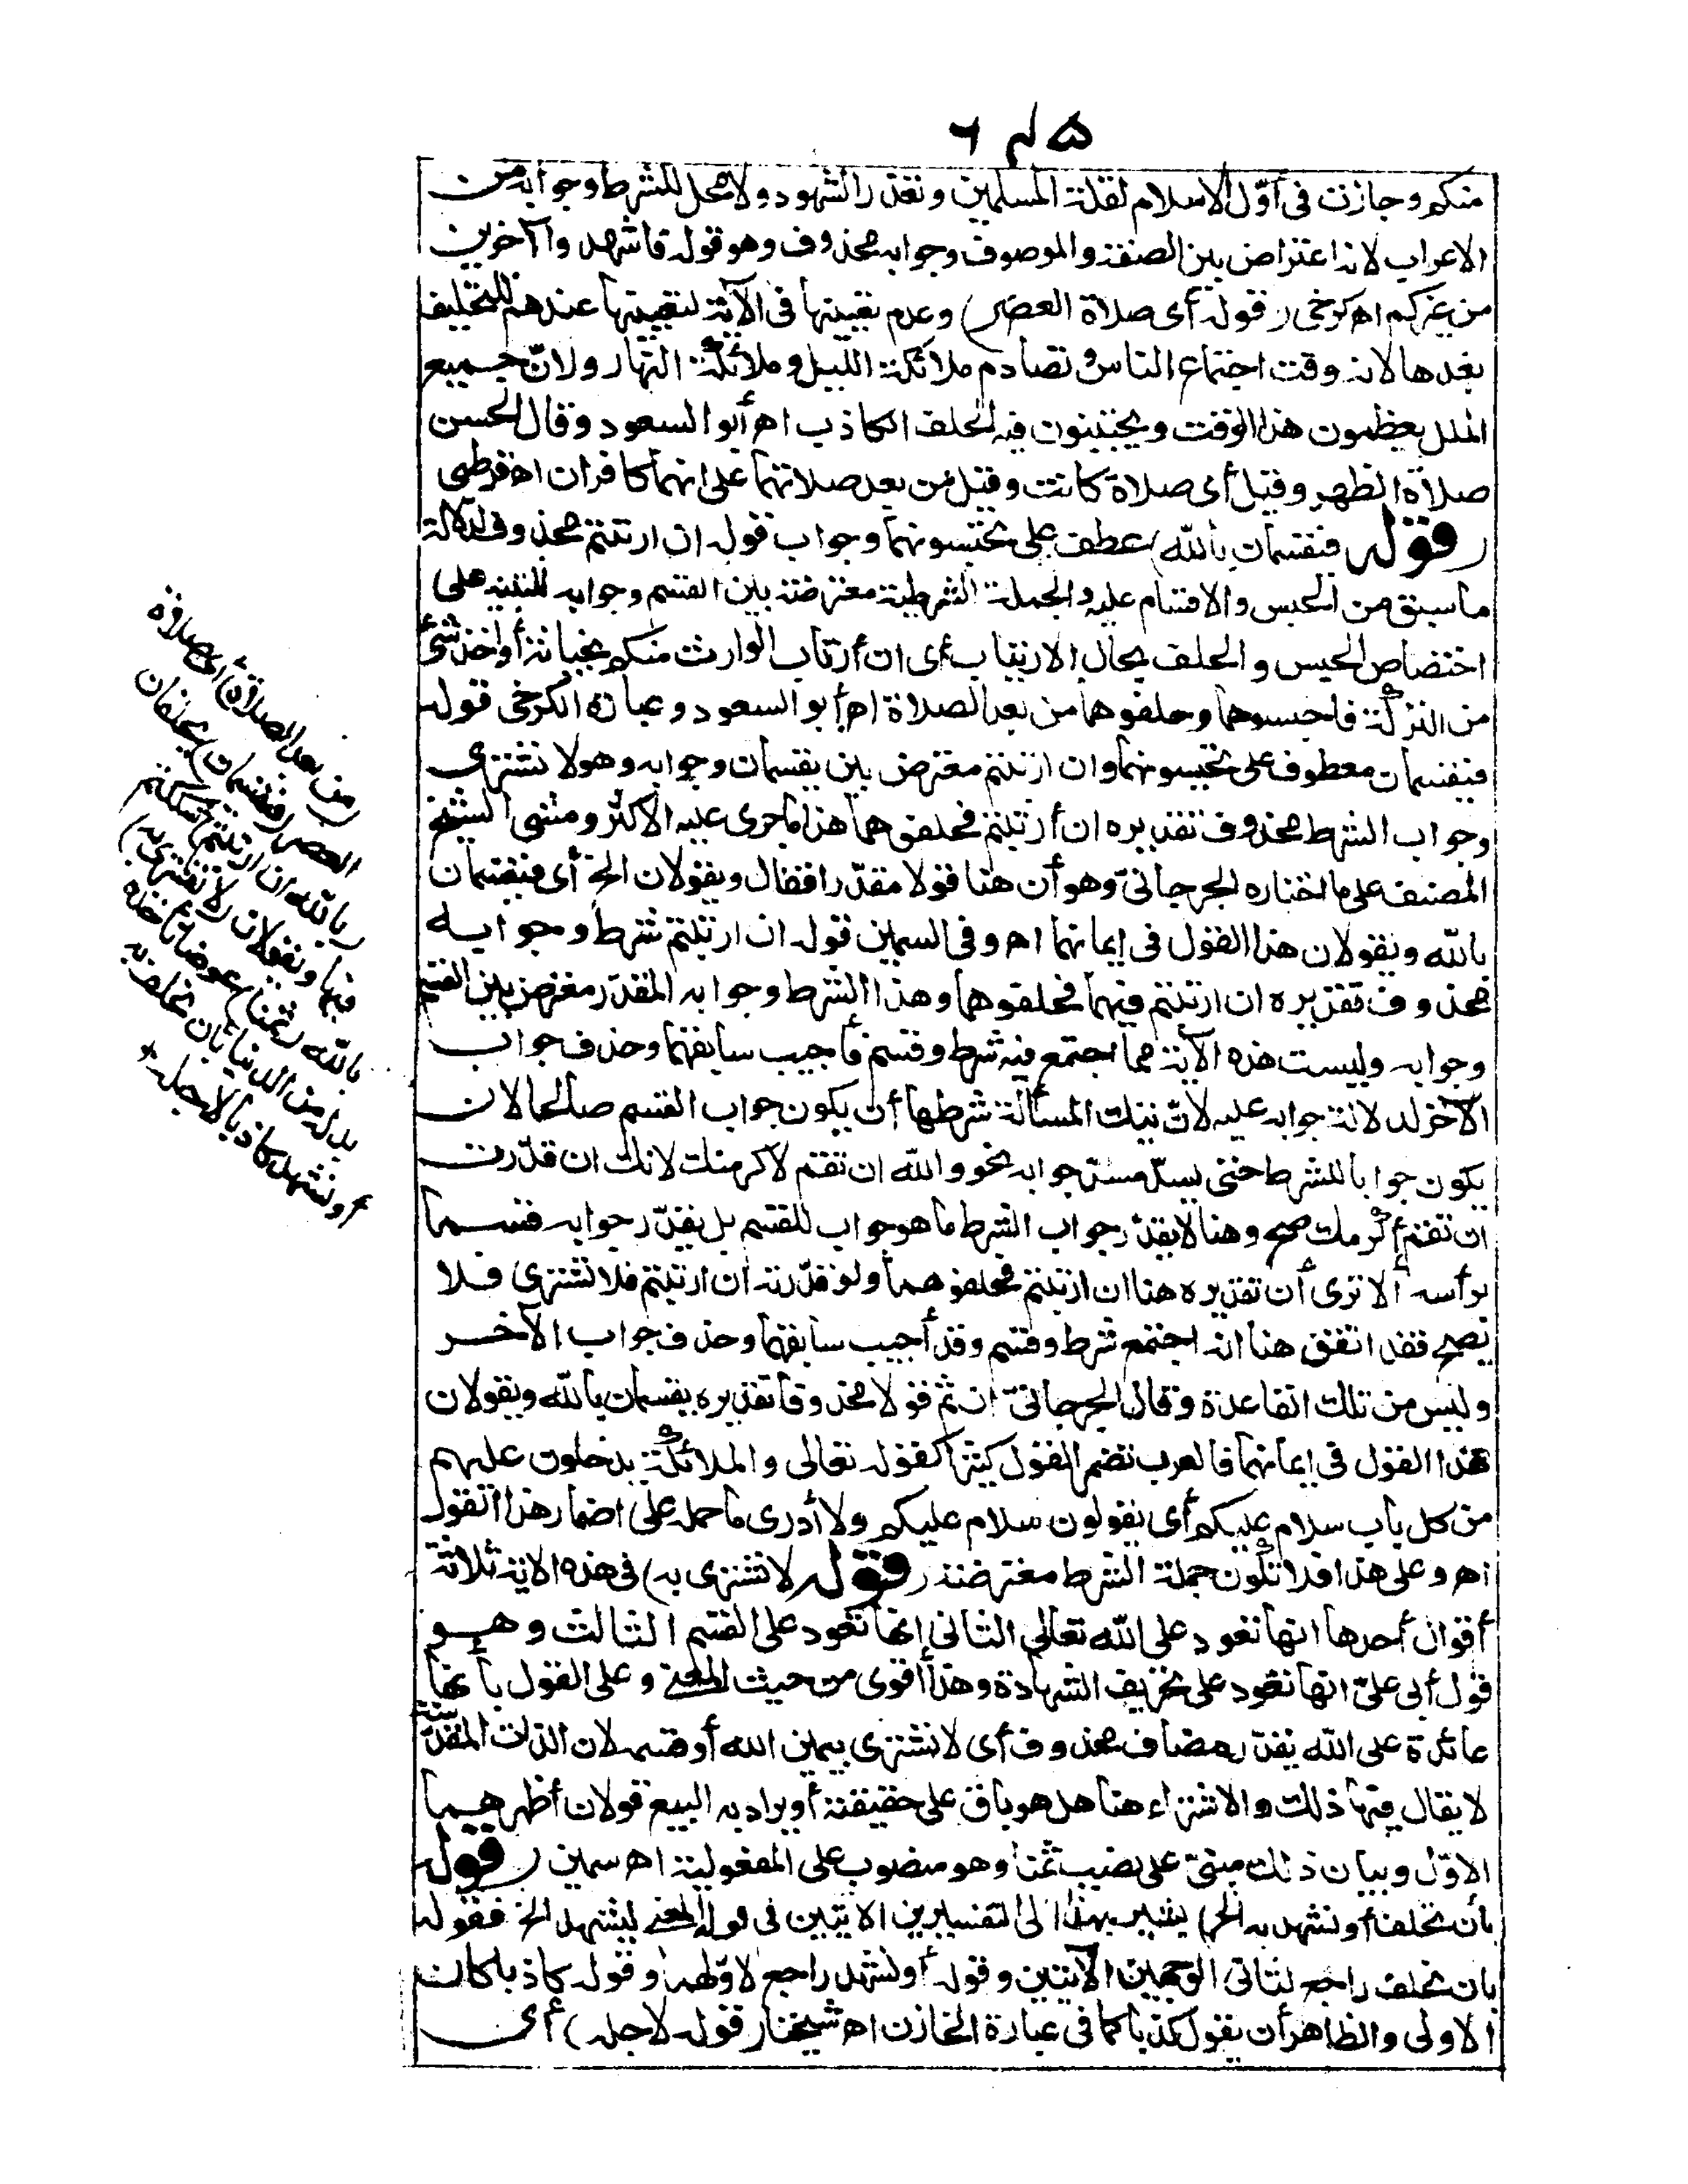 ٥٤٦
منكم وجازت فى أوّل الاسلام لقلة المسلمين وتعذر الشهود ولا محل للشرط وجوابه من
الاعراب لانه اعتراض بين الصفة والموصوف وجوابه محذوف وهو قوله فاشهدوا آخرين
من غيركم اهكرخى (قوله أى صلاة العصر) وعدم تعيينها فى الآية لتعيينها عندهم للتحليف
بعدها لانه وقت اجتماع الناس وتصادم ملائكة الليل وملائكة النهار ولانّ جميع
الملل يعظمون هذا الوقت ويجتنبون فيه الحلف الكاذب اه أبو السعود وقال الحسن
صلاة الظهر وقيل أى صلاة كانت وقيل من بعد صلاتهما على انهما كافران اه قرطبى
(قوله فيقسمان بالله) عطف على تحبسونهما وجواب قوله ان ارتبتم محذوف لدلالة
ما سبق من الحبس والاقسام عليه والجملة الشرطية معترضة بين القسم وجوابه للتنبيه على
اختصاص الحبس والحلف بحال الارتياب أى ان أرتاب الوارث منكم بخيانة أو أخذ شئ
من التركة فاحبسوهما وحلفوهما من بعد الصلاة اه أبو السعود وعبارة الكرخى قوله
فيقسمان معطوف على تحبسونهما وان ارتبتم معترض بين يقسمان وجوابه وهو لا نشترى
وجواب الشرط محذوف تقديره ان أرتبتم فحلفوهما هذا ما جرى عليه الاكثر ومشى الشيخ
المصنف على ما اختاره الجرجانىّ وهو أن هنا قولا مقدّرا فقال ويقولان الخ أى فيقسمان
بالله ويقولان هذا القول فى إيمانهما اه وفى السمين قوله ان ارتبتم شرط وجوابه
محذوف تقديره ان ارتبتم فيهما فحلفوهما وهذا الشرط وجوابه المقدّر معترض بين القسم
وجوابه وليست هذه الآية مما اجتمع فيه شرط وقسم فأجيب سابقهما وحذف جواب
الآخر لدلالة جوابه عليه لانّ تيك المسألة شرطها أن يكون جواب القسم صالحا لان
يكون جوابا للشرط حتى يسدّ مسدّ جوابه نحو والله ان تقم لاكرمنك لانك ان قدّرت
ان تقم أكرمك صح وهنا لا يقدّر جواب الشرط ما هو جواب للقسم بل يقدّر جوابه قسما
برأسه ألا ترى أن تقديره هنا ان ارتبتم فحلفوهما ولو قدّرته ان ارتبتم فلا نشترى فلا
يصح فقد اتفق هنا انه اجتمع شرط وقسم وقد أجيب سابقهما وحذف جواب الآخر
وليس من تلك القاعدة وقال الجرجانىّ ان ثم قولا محذوفا تقديره يقسمان بالله ويقولان
هذا القول فى إيمانهما فالعرب تضمر القول كثيرا كقوله تعالى والملائكة يدخلون عليهم
من كل باب سلام عليكم أى يقولون سلام عليكم ولا أدرى ما حمله على اضمار هذا القول
اه وعلى هذا فلا تكون جملة الشرط معترضة (قوله لا نشترى به) فى هذه الاية ثلاثة
أقوال أحدها انها تعود على الله تعالى الثانى إنها تعود على القسم الثالث وهو
قول أبى علىّ انها تعود على تحريف الشهادة وهذا أقوى من حيث المعنى وعلى القول بأنها
عائدة على الله يقدّر مضاف محذوف أى لا نشترى بيمين الله أو قسمه لان الذات المقدّسة
لا يقال فيها ذلك والاشتراء هنا هل هو باق على حقيقته أو يراد به البيع قولان أظهرهما
الاوّل وبيان ذلك مبنىّ على نصب ثمنا وهو منصوب على المفعولية اه سمين (قوله
بأن نحلف أو نشهد به الخ) يشير بهذا الى التفسيرين الاتيين فى قوله المعنى ليشهد الخ فقوله
بان نحلف راجع لثانى الوجهين الآتيين وقوله أو نشهد راجع لاوّلهما وقوله كاذبا كان
الاولى والظاهر أن يقول كذبا كما فى عبارة الخازن اه شيخنا (قوله لاجله) أى
(من بعد الصلاة) أى صلاة
العصر (فيقسمان) يحلفان
(بالله ان ارتبتم) شككتم
فيها ويقولان (لا نشترى به)
بالله (ثمنا) عوضا نأخذه
بدله من الدنيا بأن نحلف به
أو نشهد كاذبا لاجله